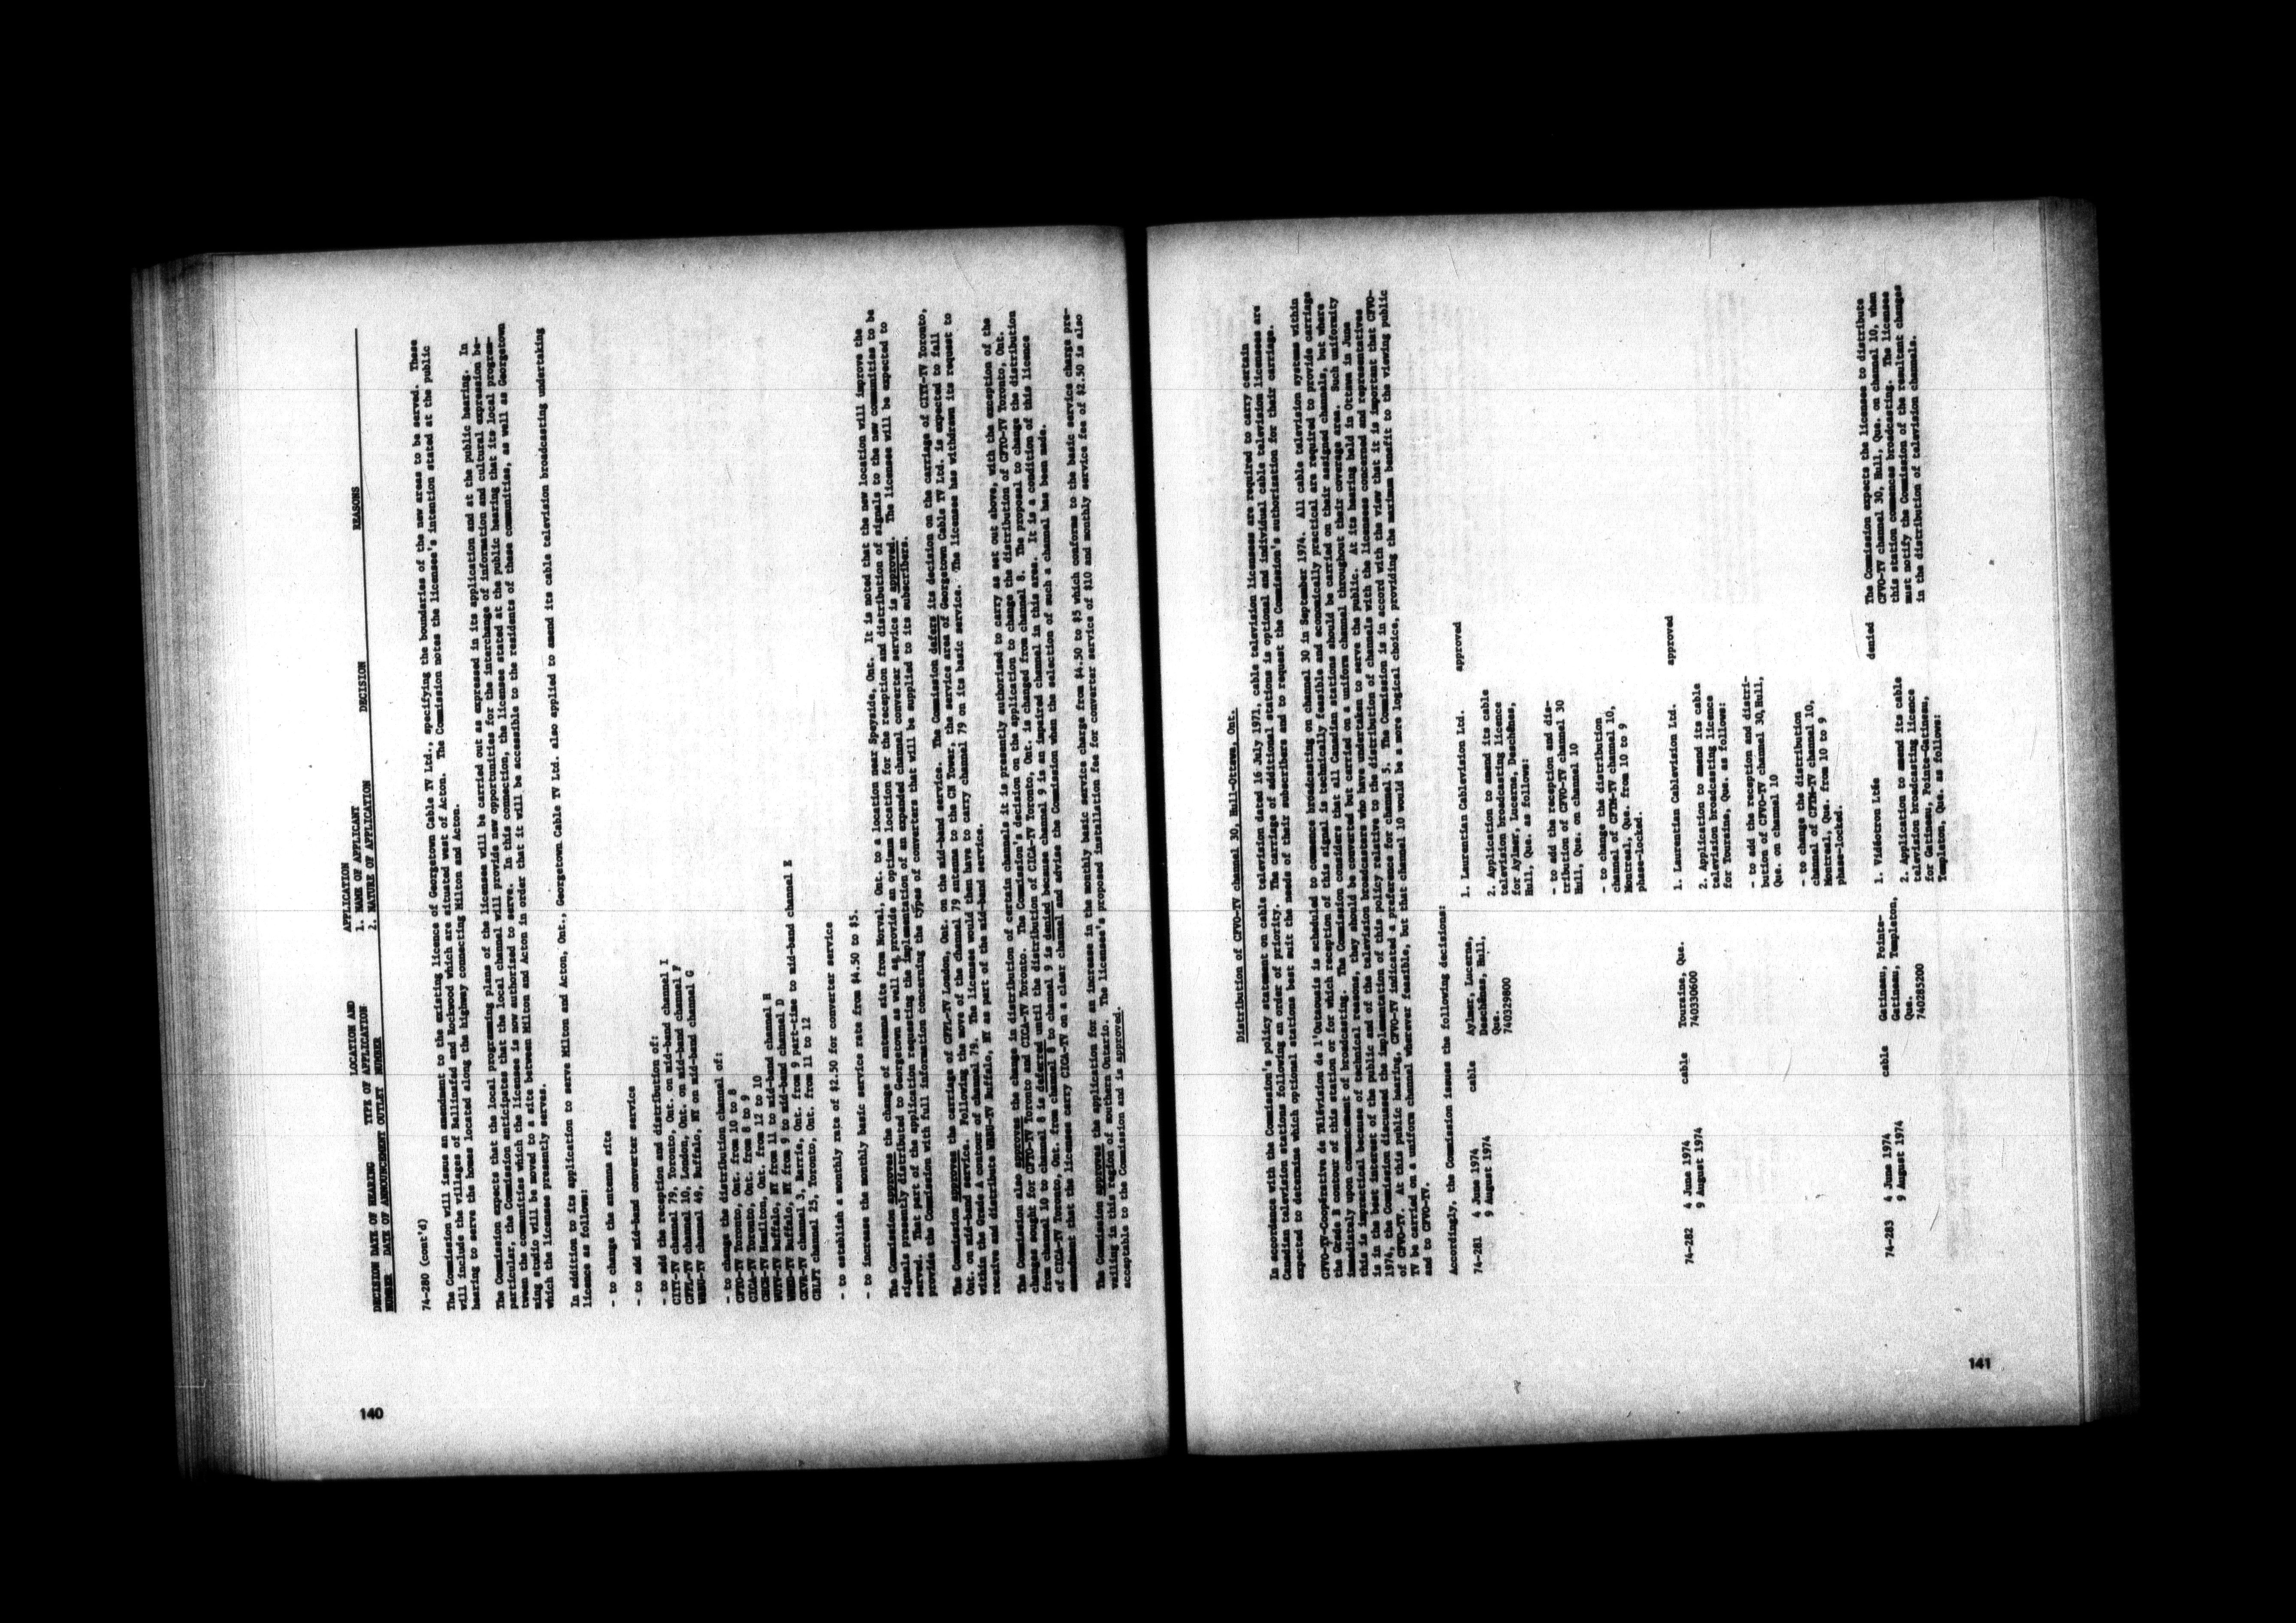 APPLICATION
DECISION DATE OF HEARING TYPE OF APPLICATION LOCATION AND 1. NAME OF APPLICANT DECISION REASONS
NUMBER DATE OF ANNOUNCEMENT OUTLET NUMBER 2. NATURE OF APPLICATION
74-280 (cont'd)
The Commission will issue an amendment to the existing licence of Georgetown Cable TV Ltd., specifying the boundaries of the new areas to be served. These
will include the villages of Ballinafad and Rockwood which are situated west of Acton. The Commission notes the licensee's intention stated at the public
hearing to serve the homes located along the highway connecting Milton and Acton.
The Commission expects that the local programming plans of the licensee will be carried out as expressed in its application and at the public hearing. In
particular, the Commission anticipates that the local channel will provide new opportunities for the interchange of information and cultural expression be-
tween the communities which the licensee is now authorized to serve. In this connection, the licensee stated at the public hearing that its local program-
ming studio will be moved to a site between Milton and Acton in order that it will be accessible to the residents of these communities, as well as Georgetown
which the licensee presently serves.
In addition to its application to serve Milton and Acton, Ont., Georgetown Cable TV Ltd. also applied to amend its cable television broadcasting undertaking
licence as follows:
- to change the antenna site
- to add mid-band converter service
- to add the reception and distribution of:
CITY-TV channel 79, Toronto, Ont. on mid-band channel I
CFPL-TV channel 10, London, Ont. on mid-band channel F
WNNU-TV channel 49, Buffalo, NY on mid-band channel G
- to change the distribution channel of:
CFTO-TV Toronto, Ont. from 10 to 8
CICA-TV Toronto, Ont. from 8 to 9
CHCH-TV Hamilton, Ont. from 12 to 10
WUTV-TV Buffalo, NY from 11 to mid-band channel H
WNED-TV Buffalo, NY from 9 to mid-band channel D
CKVR-TV channel 3, Barrie, Ont. from 9 part-time to mid-band channel E
CBLFT channel 25, Toronto, Ont. from 11 to 12
- to establish a monthly rate of $2.50 for converter service
- to increase the monthly basic service rate from $4.50 to $5.
The Commission approves the change of antenna site from Norval, Ont. to a location near Speyside, Ont. It is noted that the new location will improve the
signals presently distributed to Georgetown as well as provide an optimum location for the reception and distribution of signals to the new communities to be
served. That part of the application requesting the implementation of an expanded channel converter service is approved. The licensee will be expected to
provide the Commission with full information concerning the types of converters that will be supplied to its subscribers.
The Commission approves the carriage of CFPL-TV London, Ont. on the mid-band service. The Commission defers its decision on the carriage of CITY-TV Toronto,
Ont. on mid-band service. Following the move of the channel 79 antenna to the CN Tower, the service area of Georgetown Cable TV Ltd. is expected to fall
within the Grade A contour of channel 79. The licensee would then have to carry channel 79 on its basic service. The licensee has withdrawn its request to
receive and distribute WNNU-TV Buffalo, NY as part of the mid-band service.
The Commission also approves the change in distribution of certain channels it is presently authorized to carry as set out above, with the exception of the
changes sought for CFTO-TV Toronto and CICA-TV Toronto. The Commission's decision on the application to change the distribution of CFTO-TV Toronto, Ont.
from channel 10 to channel 8 is deferred until the distribution of CICA-TV Toronto, Ont. is changed from channel 8. The proposal to change the distribution
of CICA-TV Toronto, Ont. from channel 8 to channel 9 is denied because channel 9 is an impaired channel in this area. It is a condition of this licence
amendment that the licensee carry CICA-TV on a clear channel and advise the Commission when the selection of such a channel has been made.
The Commission approves the application for an increase in the monthly basic service charge from $4.50 to $5 which conforms to the basic service charge pre-
vailing in this region of southern Ontario. The licensee's proposed installation fee for converter service of $10 and monthly service fee of $2.50 is also
acceptable to the Commission and is approved.
140
Distribution of CFVO-TV channel 30, Hull-Ottawa, Ont.
In accordance with the Commission's policy statement on cable television dated 16 July 1971, cable television licensees are required to carry certain
Canadian television stations following an order of priority. The carriage of additional stations is optional and individual cable television licensees are
expected to determine which optional stations best suit the needs of their subscribers and to request the Commission's authorization for their carriage.
CFVO-TV-Coopérative de Télévision de l'Outaouais is scheduled to commence broadcasting on channel 30 in September 1974. All cable television systems within
the Grade B contour of this station or for which reception of this signal is technically feasible and economically practical are required to provide carriage
immediately upon commencement of broadcasting. The Commission considers that all Canadian stations should be carried on their assigned channels, but where
this is impractical because of technical reasons, they should be converted but carried on a uniform channel throughout their coverage area. Such uniformity
is in the best interest of the public and of the television broadcasters who have undertaken to serve the public. At its hearing held in Ottawa in June
1974, the Commission discussed the implementation of this policy relative to the distribution of channels with the licensees concerned and representatives
of CFVO-TV. At this public hearing, CFVO-TV indicated a preference for channel 5. The Commission is in accord with the view that it is important that CFVO-
TV be carried on a uniform channel wherever feasible, but that channel 10 would be a more logical choice, providing the maximum benefit to the viewing public
and to CFVO-TV.
Accordingly, the Commission issues the following decisions:
74-281 4 June 1974 cable Aylmer, Lucerne, 1. Laurentian Cablevision Ltd. approved
9 August 1974 Deschênes, Hull,
Que.
740329800
2. Application to amend its cable
television broadcasting licence
for Aylmer, Lucerne, Deschênes,
Hull, Que. as follows:
- to add the reception and dis-
tribution of CFVO-TV channel 30
Hull, Que. on channel 10
- to change the distribution
channel of CFTM-TV channel 10,
Montreal, Que. from 10 to 9
phase-locked.
74-282 4 June 1974 cable Touraine, Que. 1. Laurentian Cablevision Ltd. approved
9 August 1974 740330600
2. Application to amend its cable
television broadcasting licence
for Touraine, Que. as follows:
- to add the reception and distri-
bution of CFVO-TV channel 30, Hull,
Que. on channel 10
- to change the distribution
channel of CFTM-TV channel 10,
Montreal, Que. from 10 to 9
phase-locked.
74-283 4 June 1974 cable Gatineau, Pointe- 1. Vidéotron Ltée denied The Commission expects the licensee to distribute
9 August 1974 Gatineau, Templeton, CFVO-TV channel 30, Hull, Que. on channel 10, when
Que. this station commences broadcasting. The licensee
740285200 must notify the Commission of the resultant changes
in the distribution of television channels.
2. Application to amend its cable
television broadcasting licence
for Gatineau, Pointe-Gatineau,
Templeton, Que. as follows:
141